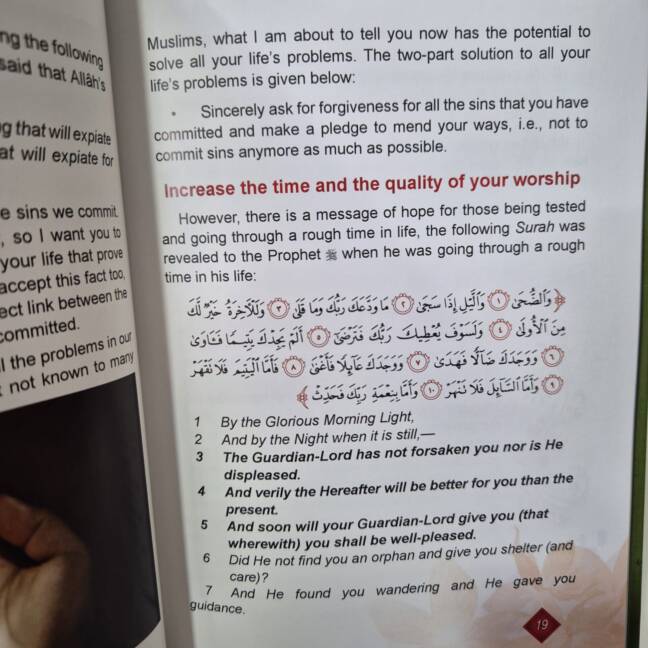 ng the following
said that Allâh's
g that will expiate
at will expiate for
e sins we commit.
, so I want you to
your life that prove
accept this fact too,
ect link between the
committed.
l the problems in our
not known to many
Muslims, what I am about to tell you now has the potential to
solve all your life's problems. The two-part solution to all your
life's problems is given below:
• Sincerely ask for forgiveness for all the sins that you have
committed and make a pledge to mend your ways, i.e., not to
commit sins anymore as much as possible.
Increase the time and the quality of your worship
However, there is a message of hope for those being tested
and going through a rough time in life, the following Surah was
revealed to the Prophet ﷺ when he was going through a rough
time in his life:
﴿وَالضُّحَىٰ ١ وَالَّيْلِ إِذَا سَجَىٰ ٢ مَا وَدَّعَكَ رَبُّكَ وَمَا قَلَىٰ ٣ وَلَلْآخِرَةُ خَيْرٌ لَّكَ
مِنَ الْأُولَىٰ ٤ وَلَسَوْفَ يُعْطِيكَ رَبُّكَ فَتَرْضَىٰ ٥ أَلَمْ يَجِدْكَ يَتِيمًا فَآوَىٰ
٦ وَوَجَدَكَ ضَالًّا فَهَدَىٰ ٧ وَوَجَدَكَ عَائِلًا فَأَغْنَىٰ ٨ فَأَمَّا الْيَتِيمَ فَلَا تَقْهَرْ
٩ وَأَمَّا السَّائِلَ فَلَا تَنْهَرْ ١٠ وَأَمَّا بِنِعْمَةِ رَبِّكَ فَحَدِّثْ﴾
1 By the Glorious Morning Light,
2 And by the Night when it is still,—
3 The Guardian-Lord has not forsaken you nor is He
displeased.
4 And verily the Hereafter will be better for you than the
present.
5 And soon will your Guardian-Lord give you (that
wherewith) you shall be well-pleased.
6 Did He not find you an orphan and give you shelter (and
care)?
7 And He found you wandering and He gave you
guidance.
19